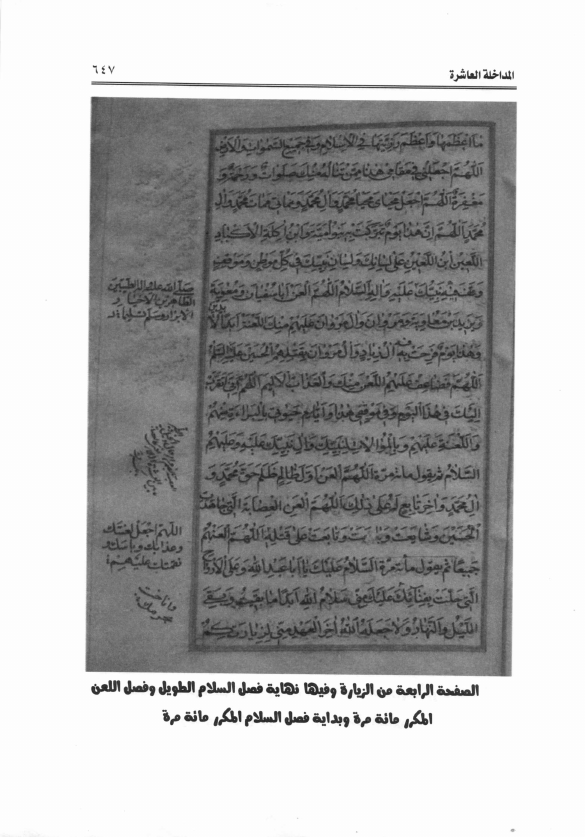 المداخلة العاشرة
٦٤٧
ما اعظمها واعظم رزيتها في الاسلام وفي جميع السموات والارض
اللهم اجعلني في مقامي هذا ممن تناله منك صلوات ورحمة و
مغفرة اللهم اجعل محياي محيا محمد وال محمد ومماتي ممات محمد وال
محمد اللهم ان هذا يوم تبركت به بنو امية وابن اكلة الاكباد
اللعين ابن اللعين على لسانك ولسان نبيك في كل موطن وموقف
وقف فيه نبيك عليه واله السلام اللهم العن ابا سفيان ومعوية
ويزيد بن معاوية وال مروان عليهم منك اللعنة ابد الا
بدين
وهذا يوم فرحت به ال زياد وال مروان بقتلهم الحسين عليه السلام
اللهم فضاعف عليهم اللعن منك والعذاب الاليم اللهم اني اتقرب
اليك في هذا اليوم وفي موقفي هذا وايام حيوتي بالبراءة منهم
واللعنة عليهم وبالموالاة لنبيك وال نبيك عليه وعليهم
السلام ثم يقول مائة مرة اللهم العن اول ظالم ظلم حق محمد و
ال محمد واخر تابع له على ذلك اللهم العن العصابة التي جاهدت
الحسين وشايعت وبايعت وتابعت على قتله اللهم العنهم
جميعا ثم يقول مائة مرة السلام عليك يا ابا عبد الله وعلى الارواح
التي حلت بفنائك عليك مني سلام الله ابدا ما بقيت وبقي
الليل والنهار ولا جعله الله اخر العهد مني لزيارتكم
صلى الله عليهم الطيبين
الطاهرين الاخيار و
الابرار وسلم تسليما
اللهم اجعل لعنتك
وعذابك وباسك و
نقمتك عليهم
الصفحة الرابعة من الزيارة وفيها نهاية فصل السلام الطويل وفصل اللعن
المكرر مائة مرة وبداية فصل السلام المكرر مائة مرة